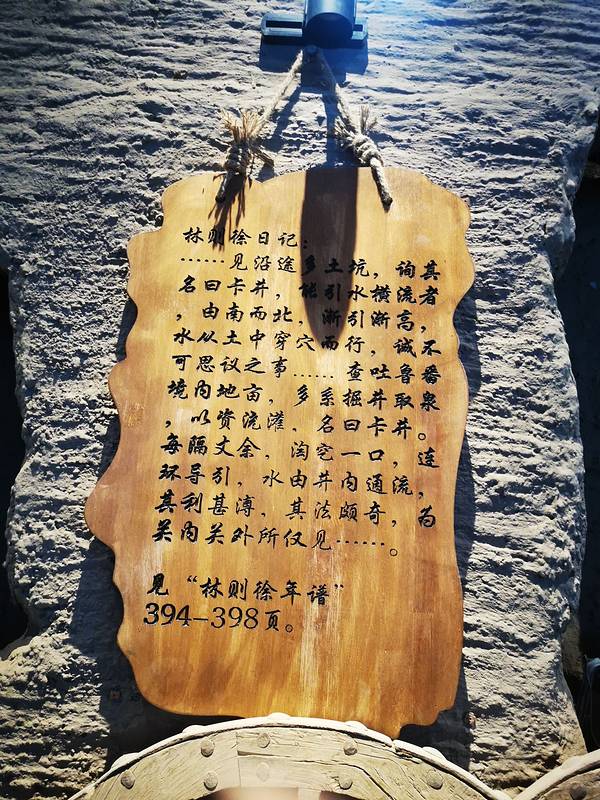 林则徐日记：
……见沿途多土坑，询其
名曰卡井，能引水横流者
，由南而北，渐引渐高，
水从土中穿穴而行，诚不
可思议之事……查吐鲁番
境内地亩，多系掘井取泉
，以资流灌，名曰卡井。
每隔丈余，淘挖一口，连
环导引，水由井内通流，
其利甚溥，其法颇奇，为
关内关外所仅见……。
见“林则徐年谱”
394-398页。